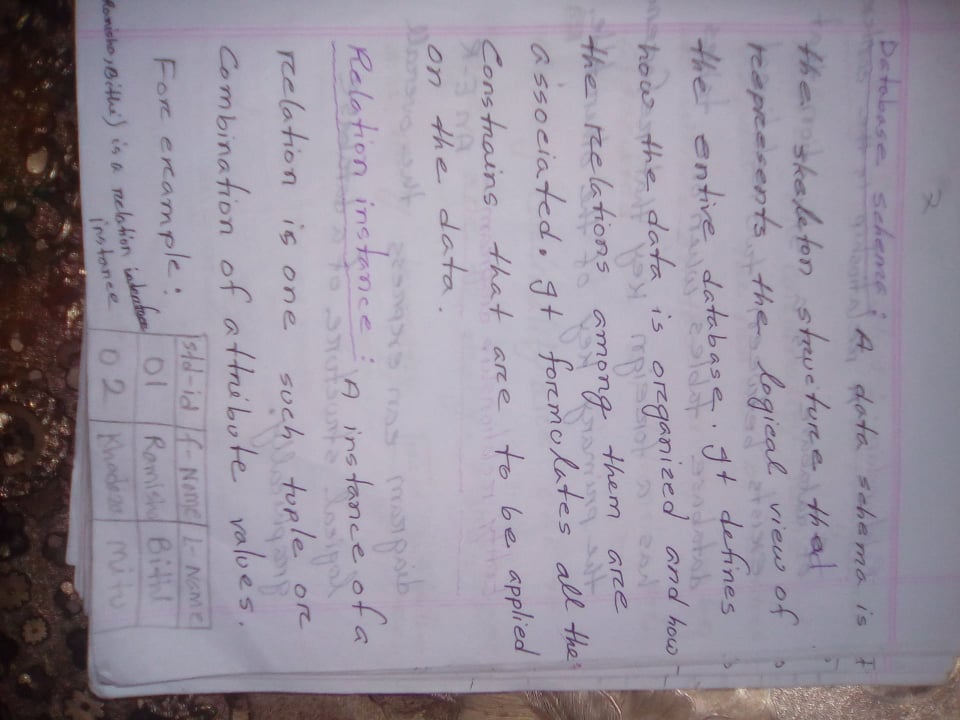 2
Database schema : A data schema is
the skeleton structure that
represents the logical view of
the entire database. It defines
how the data is organized and how
the relations among them are
associated. It formulates all the
Constrains that are to be applied
on the data.
Relation instance : A instance of a
relation is one such tuple or
Combination of attribute values.
For example :
std-id f-Name L-Name
01 Ramisha Bithi
02 Khadeza mitu
Ramisha, Bithi) is a relation
instance